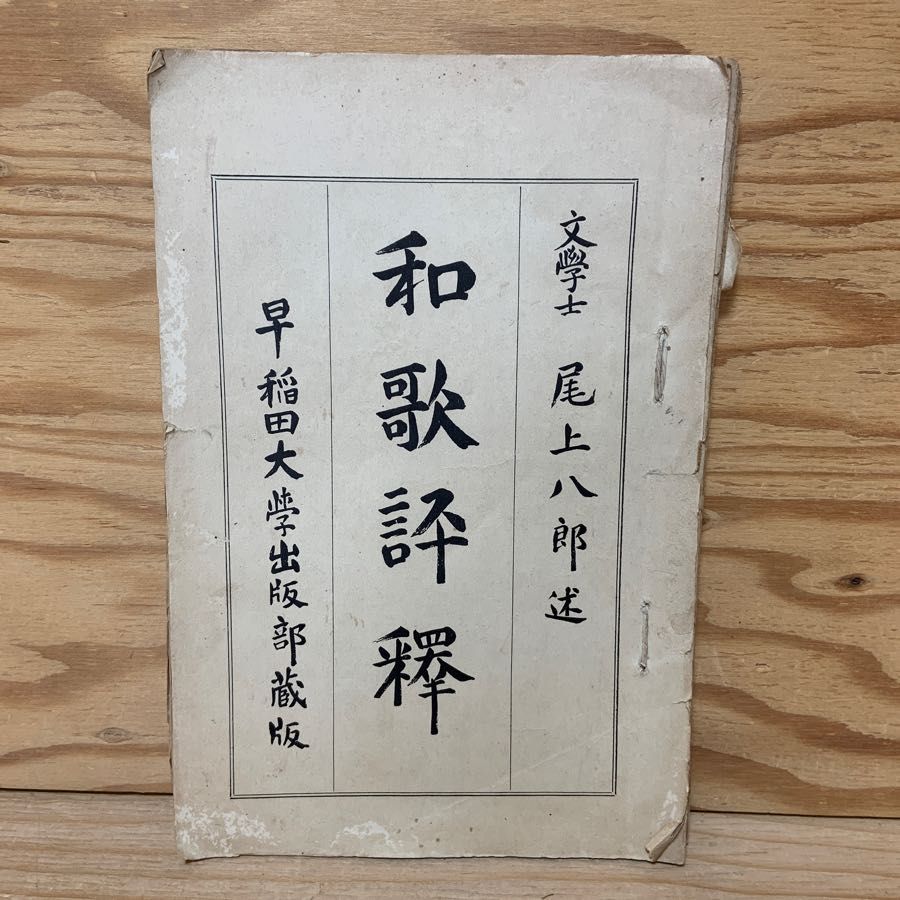 文學士 尾上八郎述
和歌評釋
早稲田大學出版部蔵版